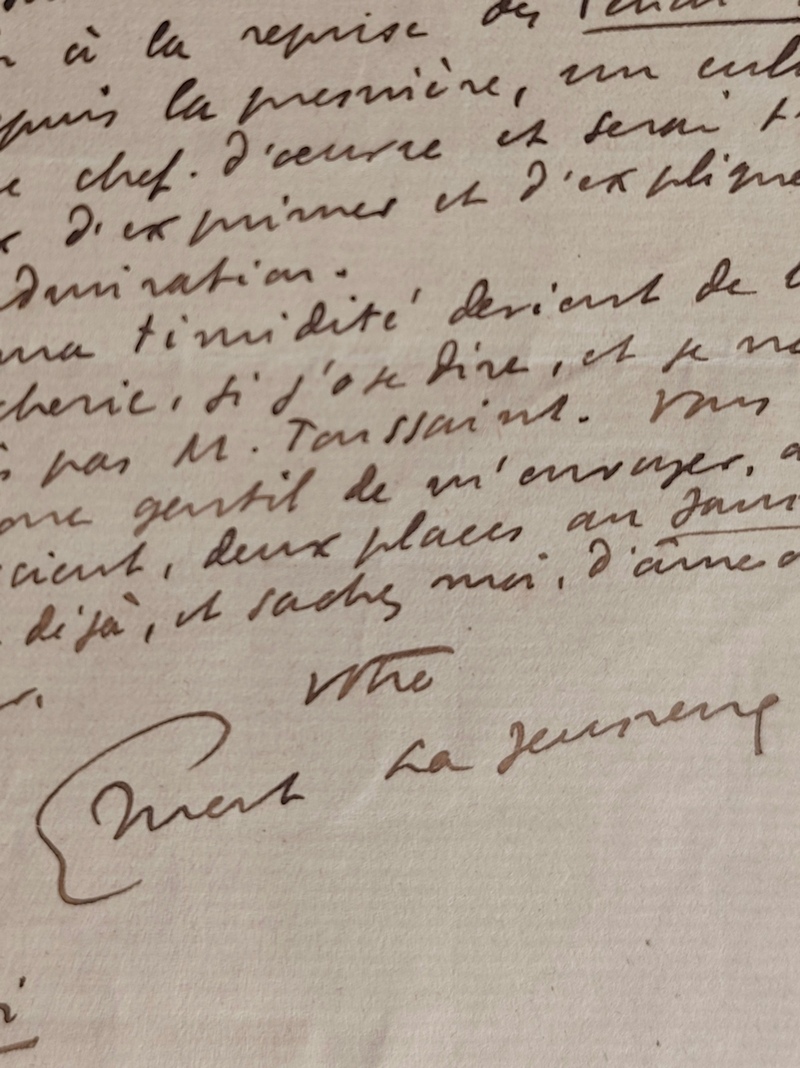 à la reprise des
la première, un
chef. d'œuvre et serai
d'exprimer et d'explique
admiration.
ma timidité devient de
si j'ose dire, et je ne
pas M. Toussaint. Vous
gentil de m'envoyer,
deux places au
déjà, et sachez moi, d'âme
votre
Ernest La Jeunesse